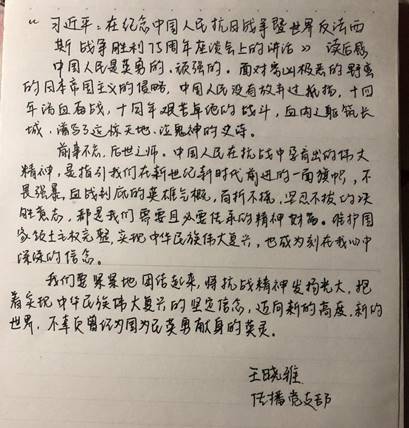 “习近平:在纪念中国人民抗日战争暨世界反法西
斯战争胜利75周年座谈会上的讲话》 读后感
中国人民是英勇的、顽强的。面对穷凶极恶的野蛮
的日本帝国主义的侵略,中国人民没有放弃过抵抗,十四
年浴血奋战,十四年艰苦卓绝的战斗,血肉之躯筑长
城,谱写了这惊天地、泣鬼神的史诗。
前事不忘,后世之师。中国人民在抗战中孕育出的伟大
精神,是指引我们在新世纪新时代前进的一面旗帜,不
畏强暴、血战到底的英雄气概,百折不挠、坚忍不拔的决
胜意志,都是我们需要且必要传承的精神财富。维护国
家领土主权完整,实现中华民族伟大复兴,也成为刻在我心中
深深的信念。
我们要紧紧地团结起来,将抗战精神发扬光大,抱
着实现中华民族伟大复兴的坚定信念,迈向新的高度、新的
世界,不辜负曾经为国为民英勇献身的英灵。
王晓雅
传播党支部